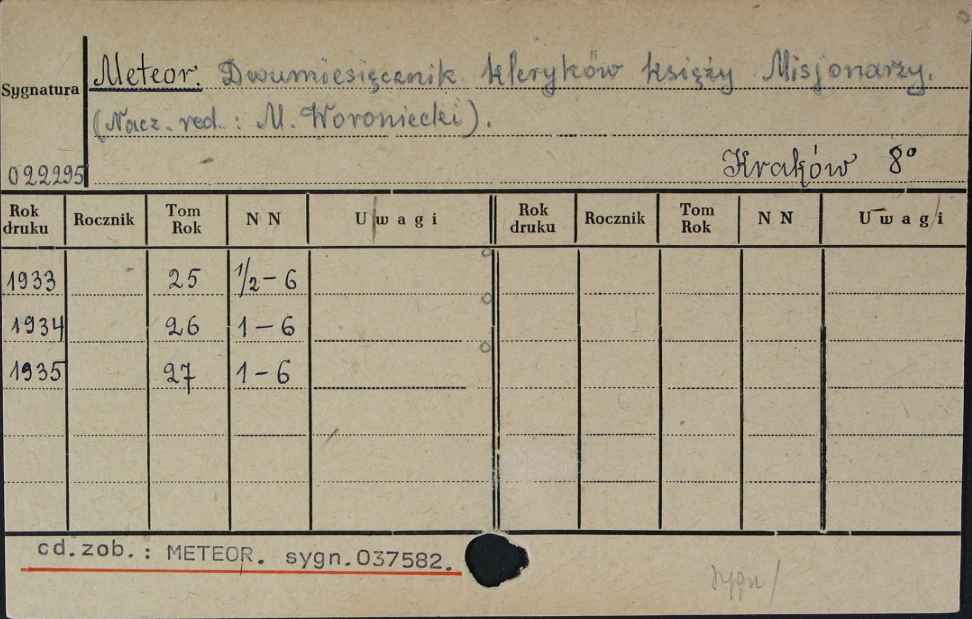 Meteor. Dwumiesięcznik kleryków księży Misjonarzy.
Sygnatura
(Nacz. red. : M. Woroniecki).
022295 Kraków 8°
Rok druku Rocznik Tom Rok N N Uwagi Rok druku Rocznik Tom Rok N N Uwagi
1933 25 1/2 – 6
1934 26 1 – 6
1935 27 1 – 6
cd.zob.: METEOR. sygn.037582.